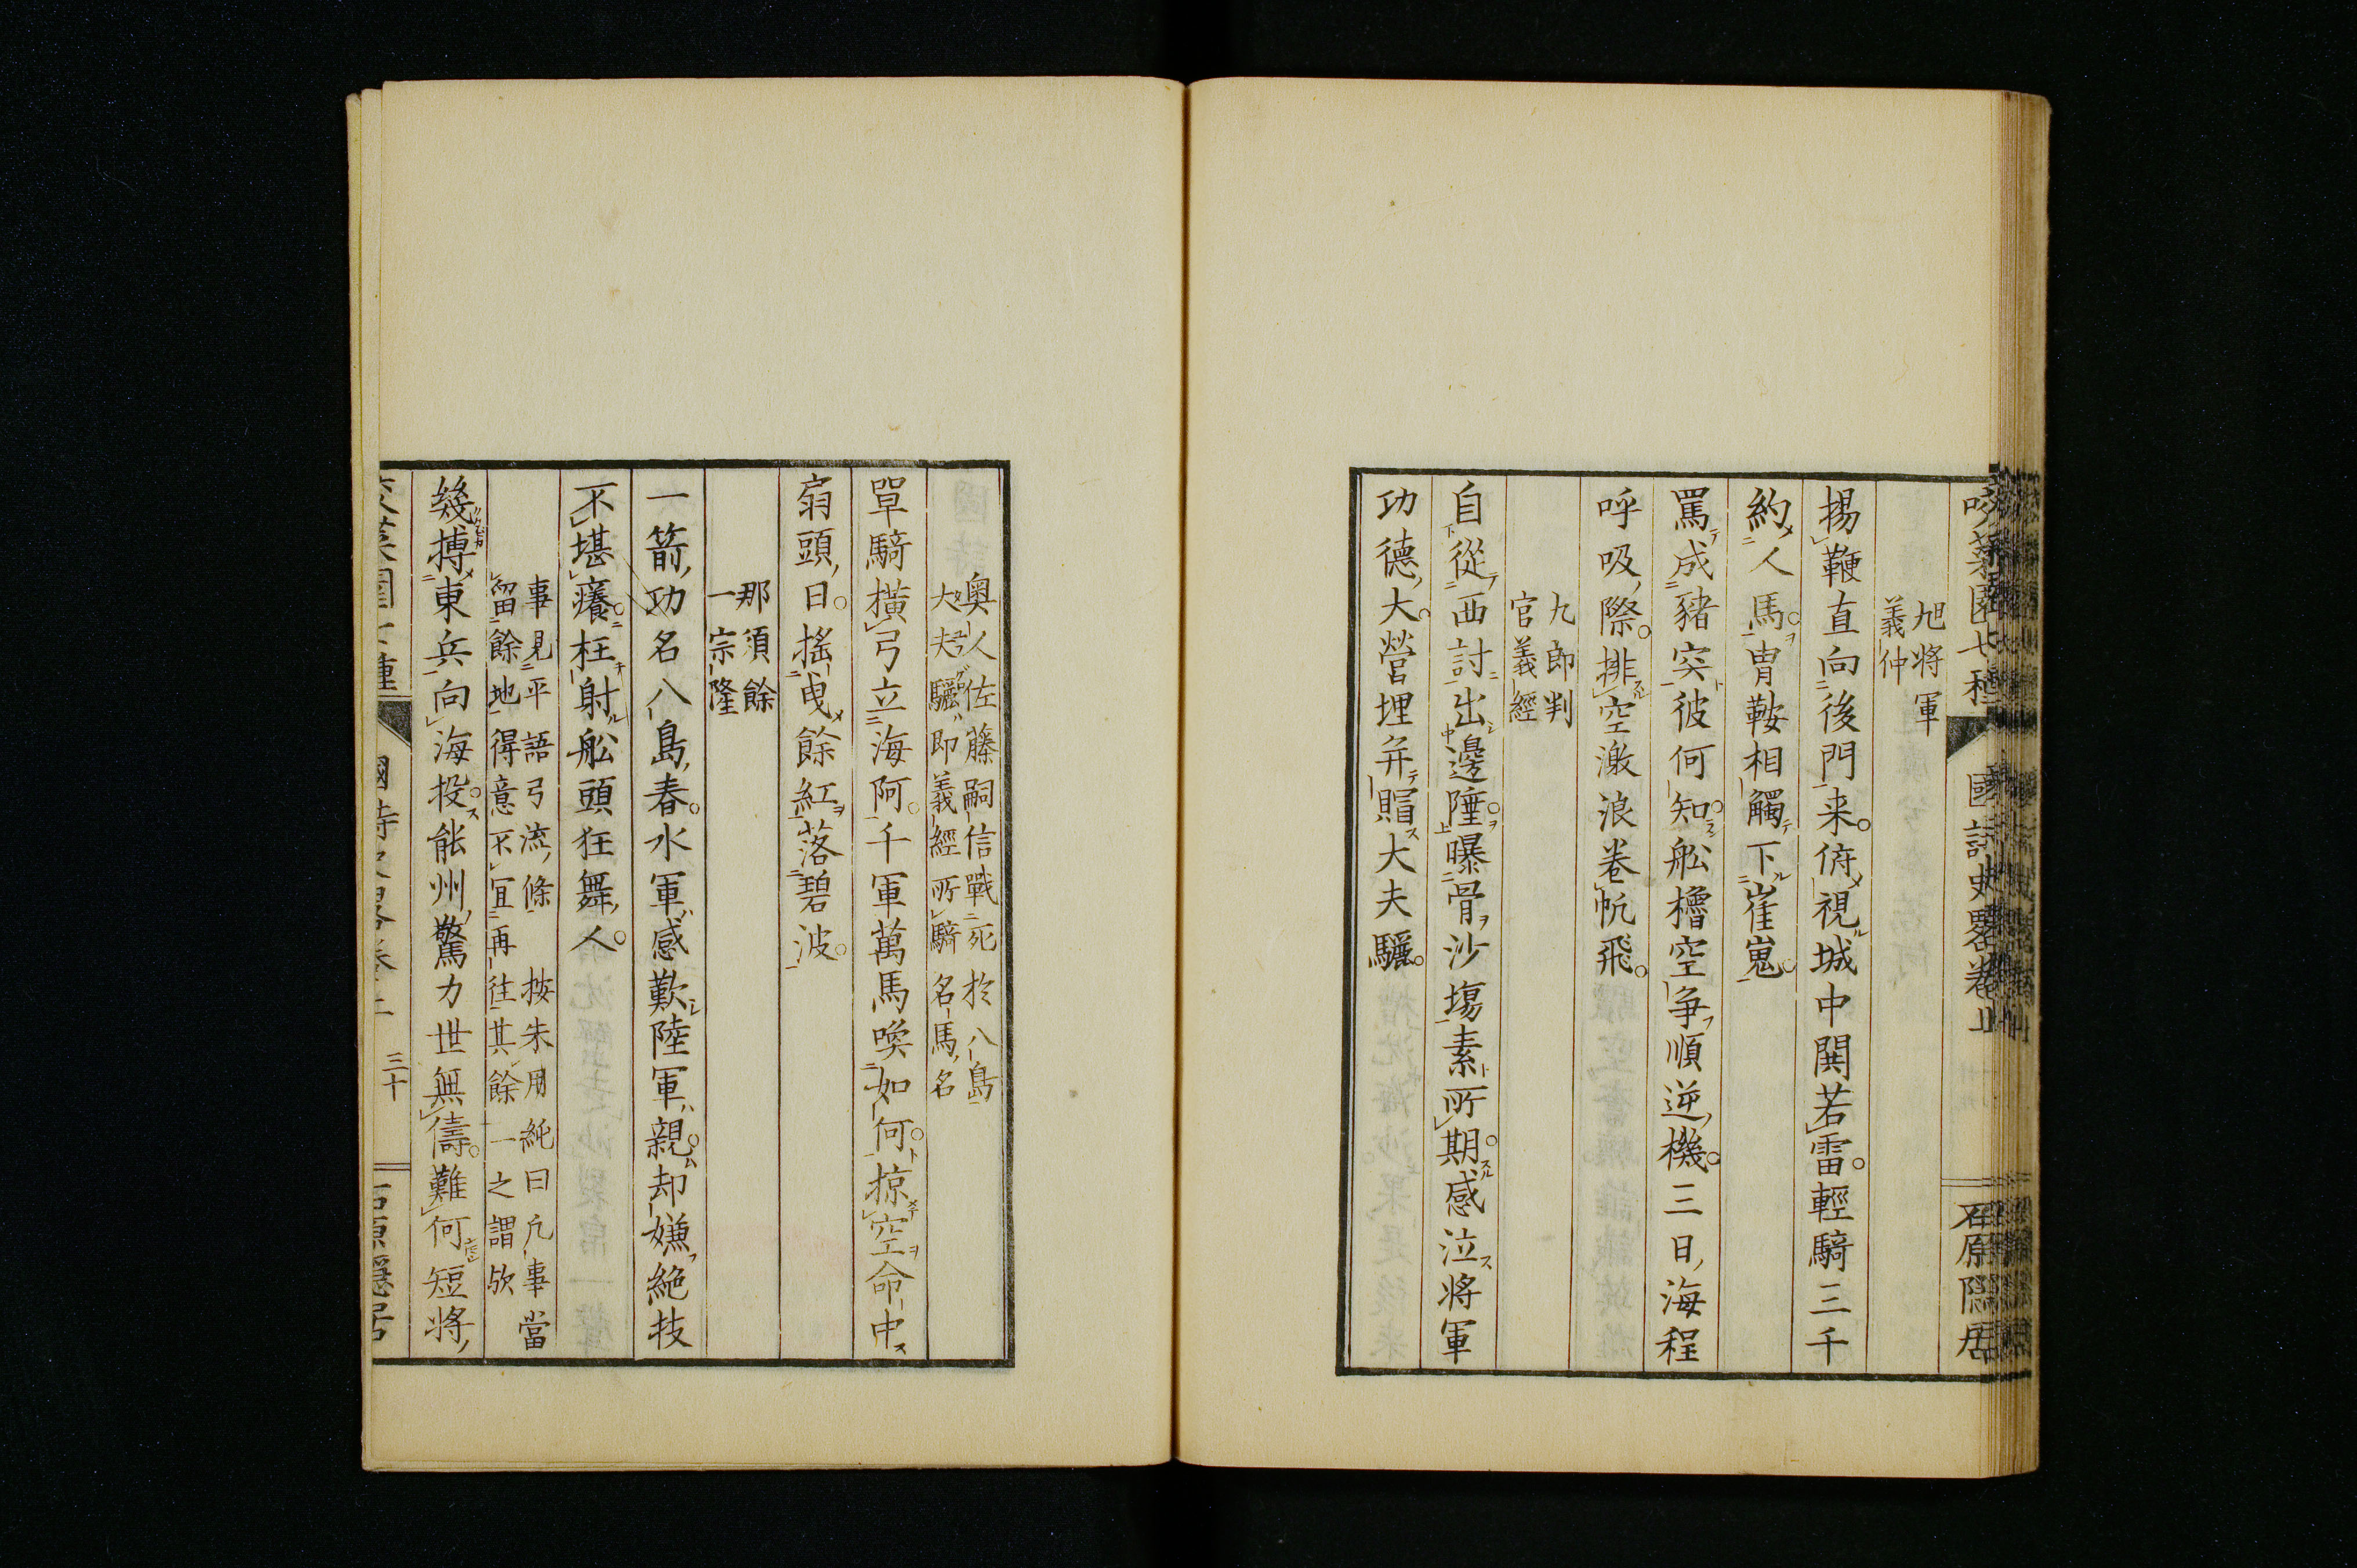 國詩史略卷上
石原隱居
旭將軍
義仲
揚鞭直向後門来俯視城中鬨若雷輕騎三千
約人馬冑鞍相觸下崔嵬
罵成豬突彼何知舩櫓空争順逆機三日海程
呼吸際排空激浪卷帆飛
九郎判
官義經
自從西討出邊陲曝骨沙塲素所期感泣將軍
功德大營埋弁賵大夫驪
奥人佐藤嗣信戰死於八島
大夫驪即義經所騎名馬名
單騎橫弓立海阿千軍萬馬喚如何掠空命中
扇頭日搖曳餘紅落碧波
那須餘
一宗隆
一箭功名八島春水軍感歎陸軍親却嫌絶技
不堪癢枉射舩頭狂舞人
事見平語弓流條 按朱用純曰凢事當
留餘地得意不宜再往其餘一之謂歟
幾搏東兵向海投能州驚力世無儔難何短將
三十